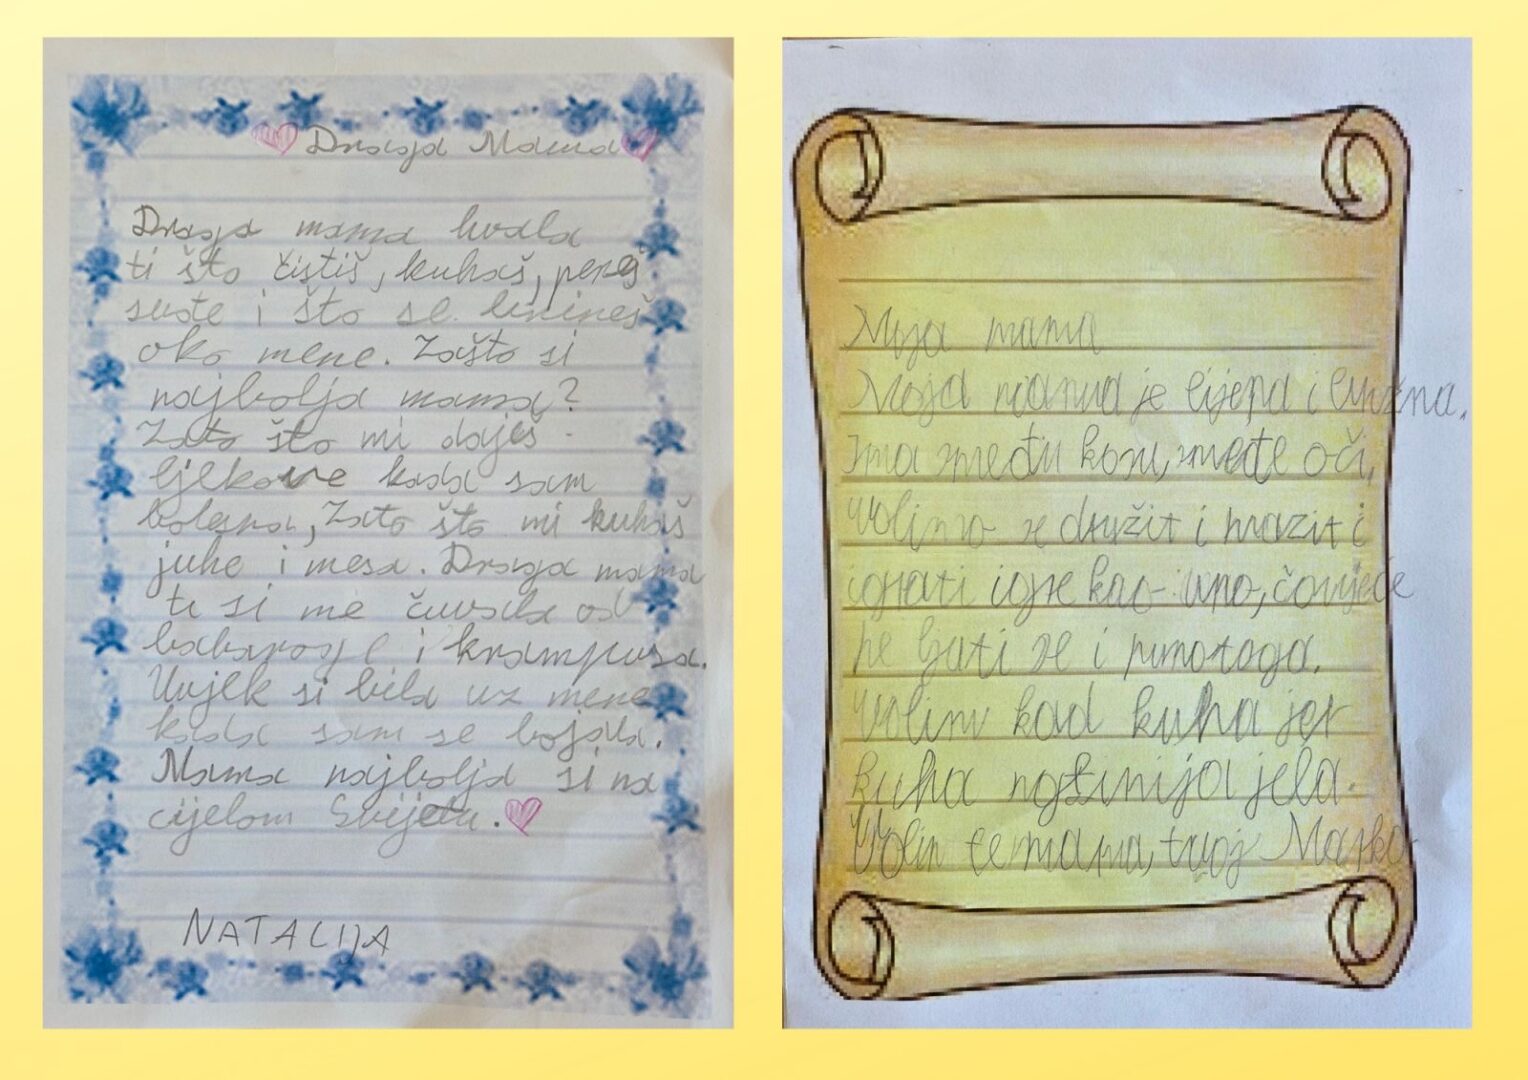 Draga Mama
Draga mama hvala
ti što čistiš, kuhaš, pereš
suđe i što se brineš
oko mene. Zašto si
najbolja mama?
Zato što mi daješ
ljekove kada sam
bolesna, Zato što mi kuhaš
juhe i mesa. Draga mama
ti si me čuvala od
babaroge i krampusa.
Uvjek si bila uz mene
kada sam se bojala.
Mama najbolja si na
cijelom Svijetu.
NATALIJA
Moja mama
Moja mama je lijepa i
Ima smeđu kosu, smeđe oči,
Volimo se družit i mazit i
igrati igre kao uno, čovječe
ne ljuti se i punotoga.
Volim kad kuha jer
kuha jela.
Volim te mama, tvoj Marko